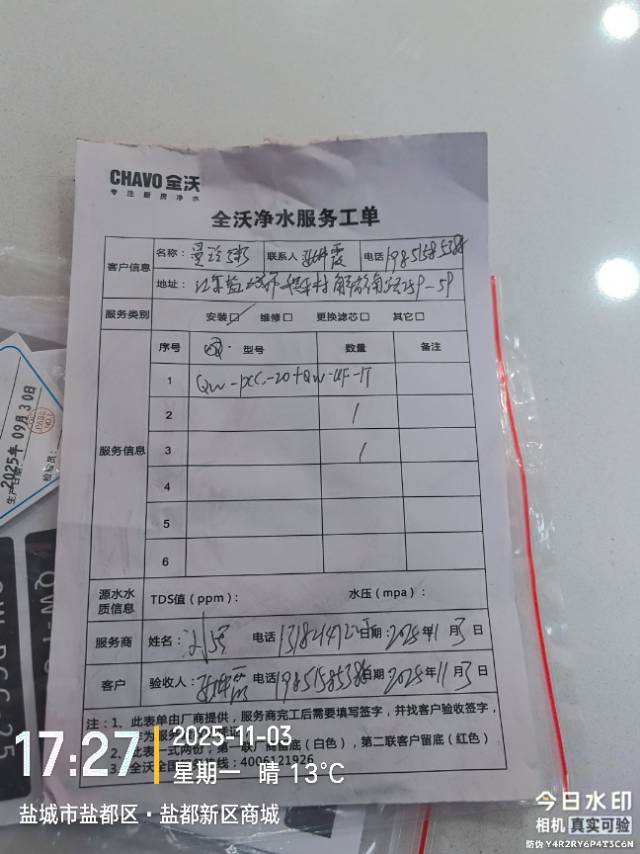 CHAVO 全沃
专注厨房净水
全沃净水服务工单
客户信息 名称： 联系人 电话
地址：
服务类别 安装☑ 维修□ 更换滤芯□ 其它□
服务信息
序号 型号 数量 备注
1 QW-PCC-20+QW-UF-1T
2 1
3 1
4
5
6
源水水质信息 TDS值（ppm）： 水压（mpa）：
服务商 姓名： 电话 日期：2025年11月3日
客户 验收人： 电话 日期：2025年11月3日
注：1、此表单由厂商提供，服务商完工后需要填写签字，并找客户验收签字，
2、此表一式两份，第一联厂商留底（白色），第二联客户留底（红色）
3、全沃全国 热线：4006121926
生产日期：
2025年09月30日
检验员：
17:27
2025-11-03
星期一 晴 13℃
盐城市盐都区·盐都新区商城
今日水印
相机 真实可验
防伪 Y4R2RY6P4T3C6N